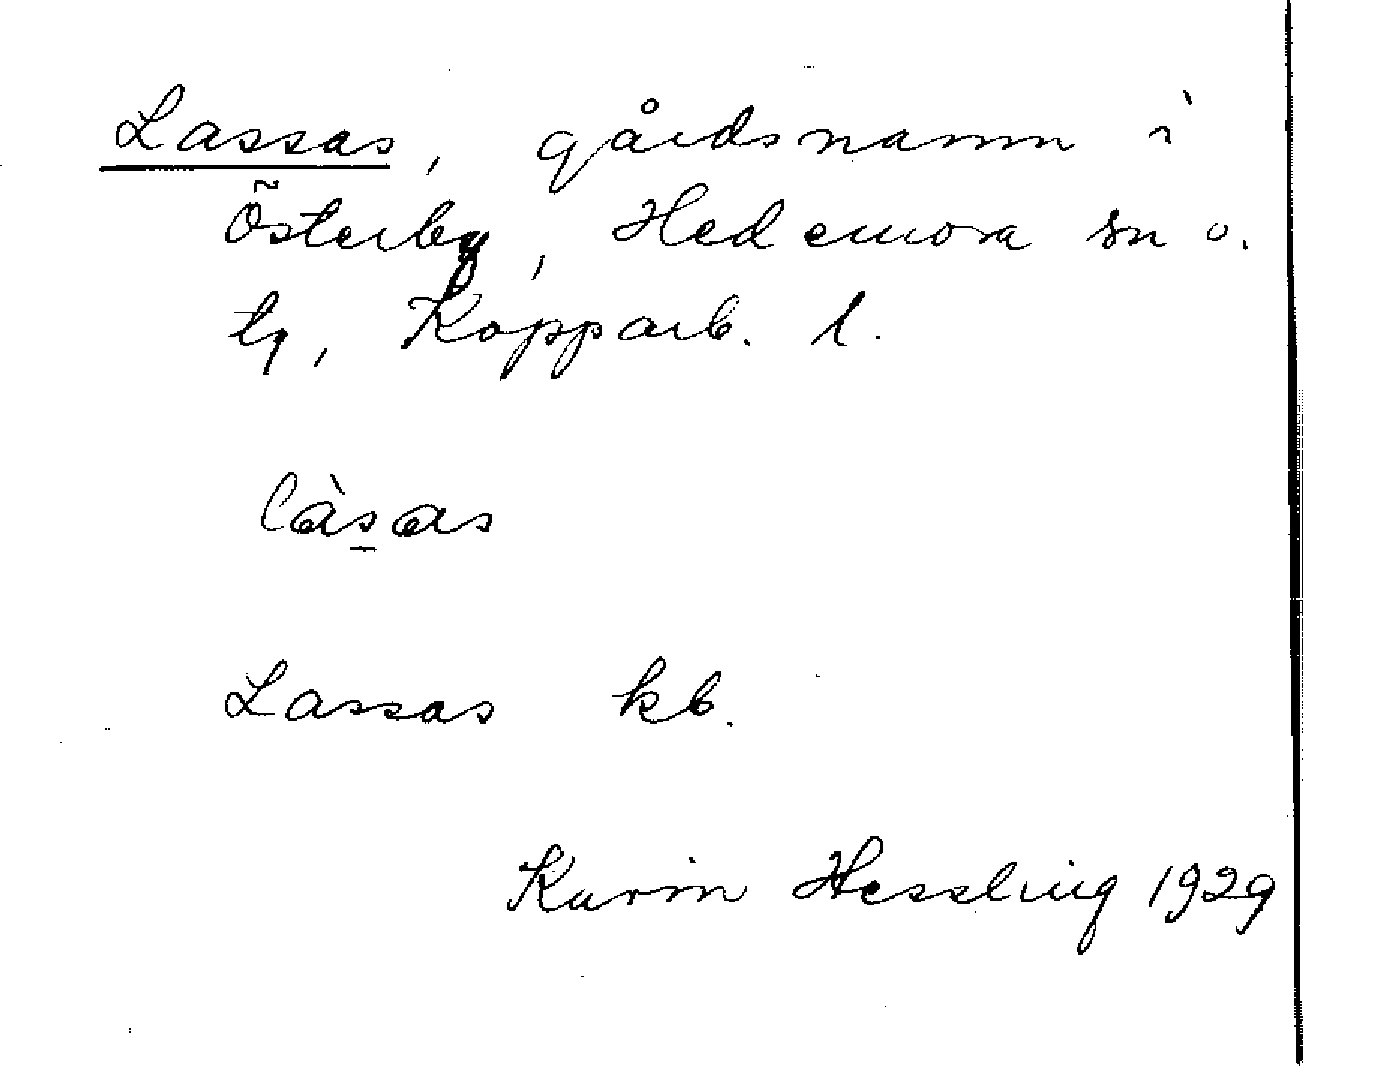 Lassas, gårdsnamn i
Österby, Hedemora sn o.
tg, Kopparb. l.
làs̠as
Lassas kb.
Karin Hessling 1929